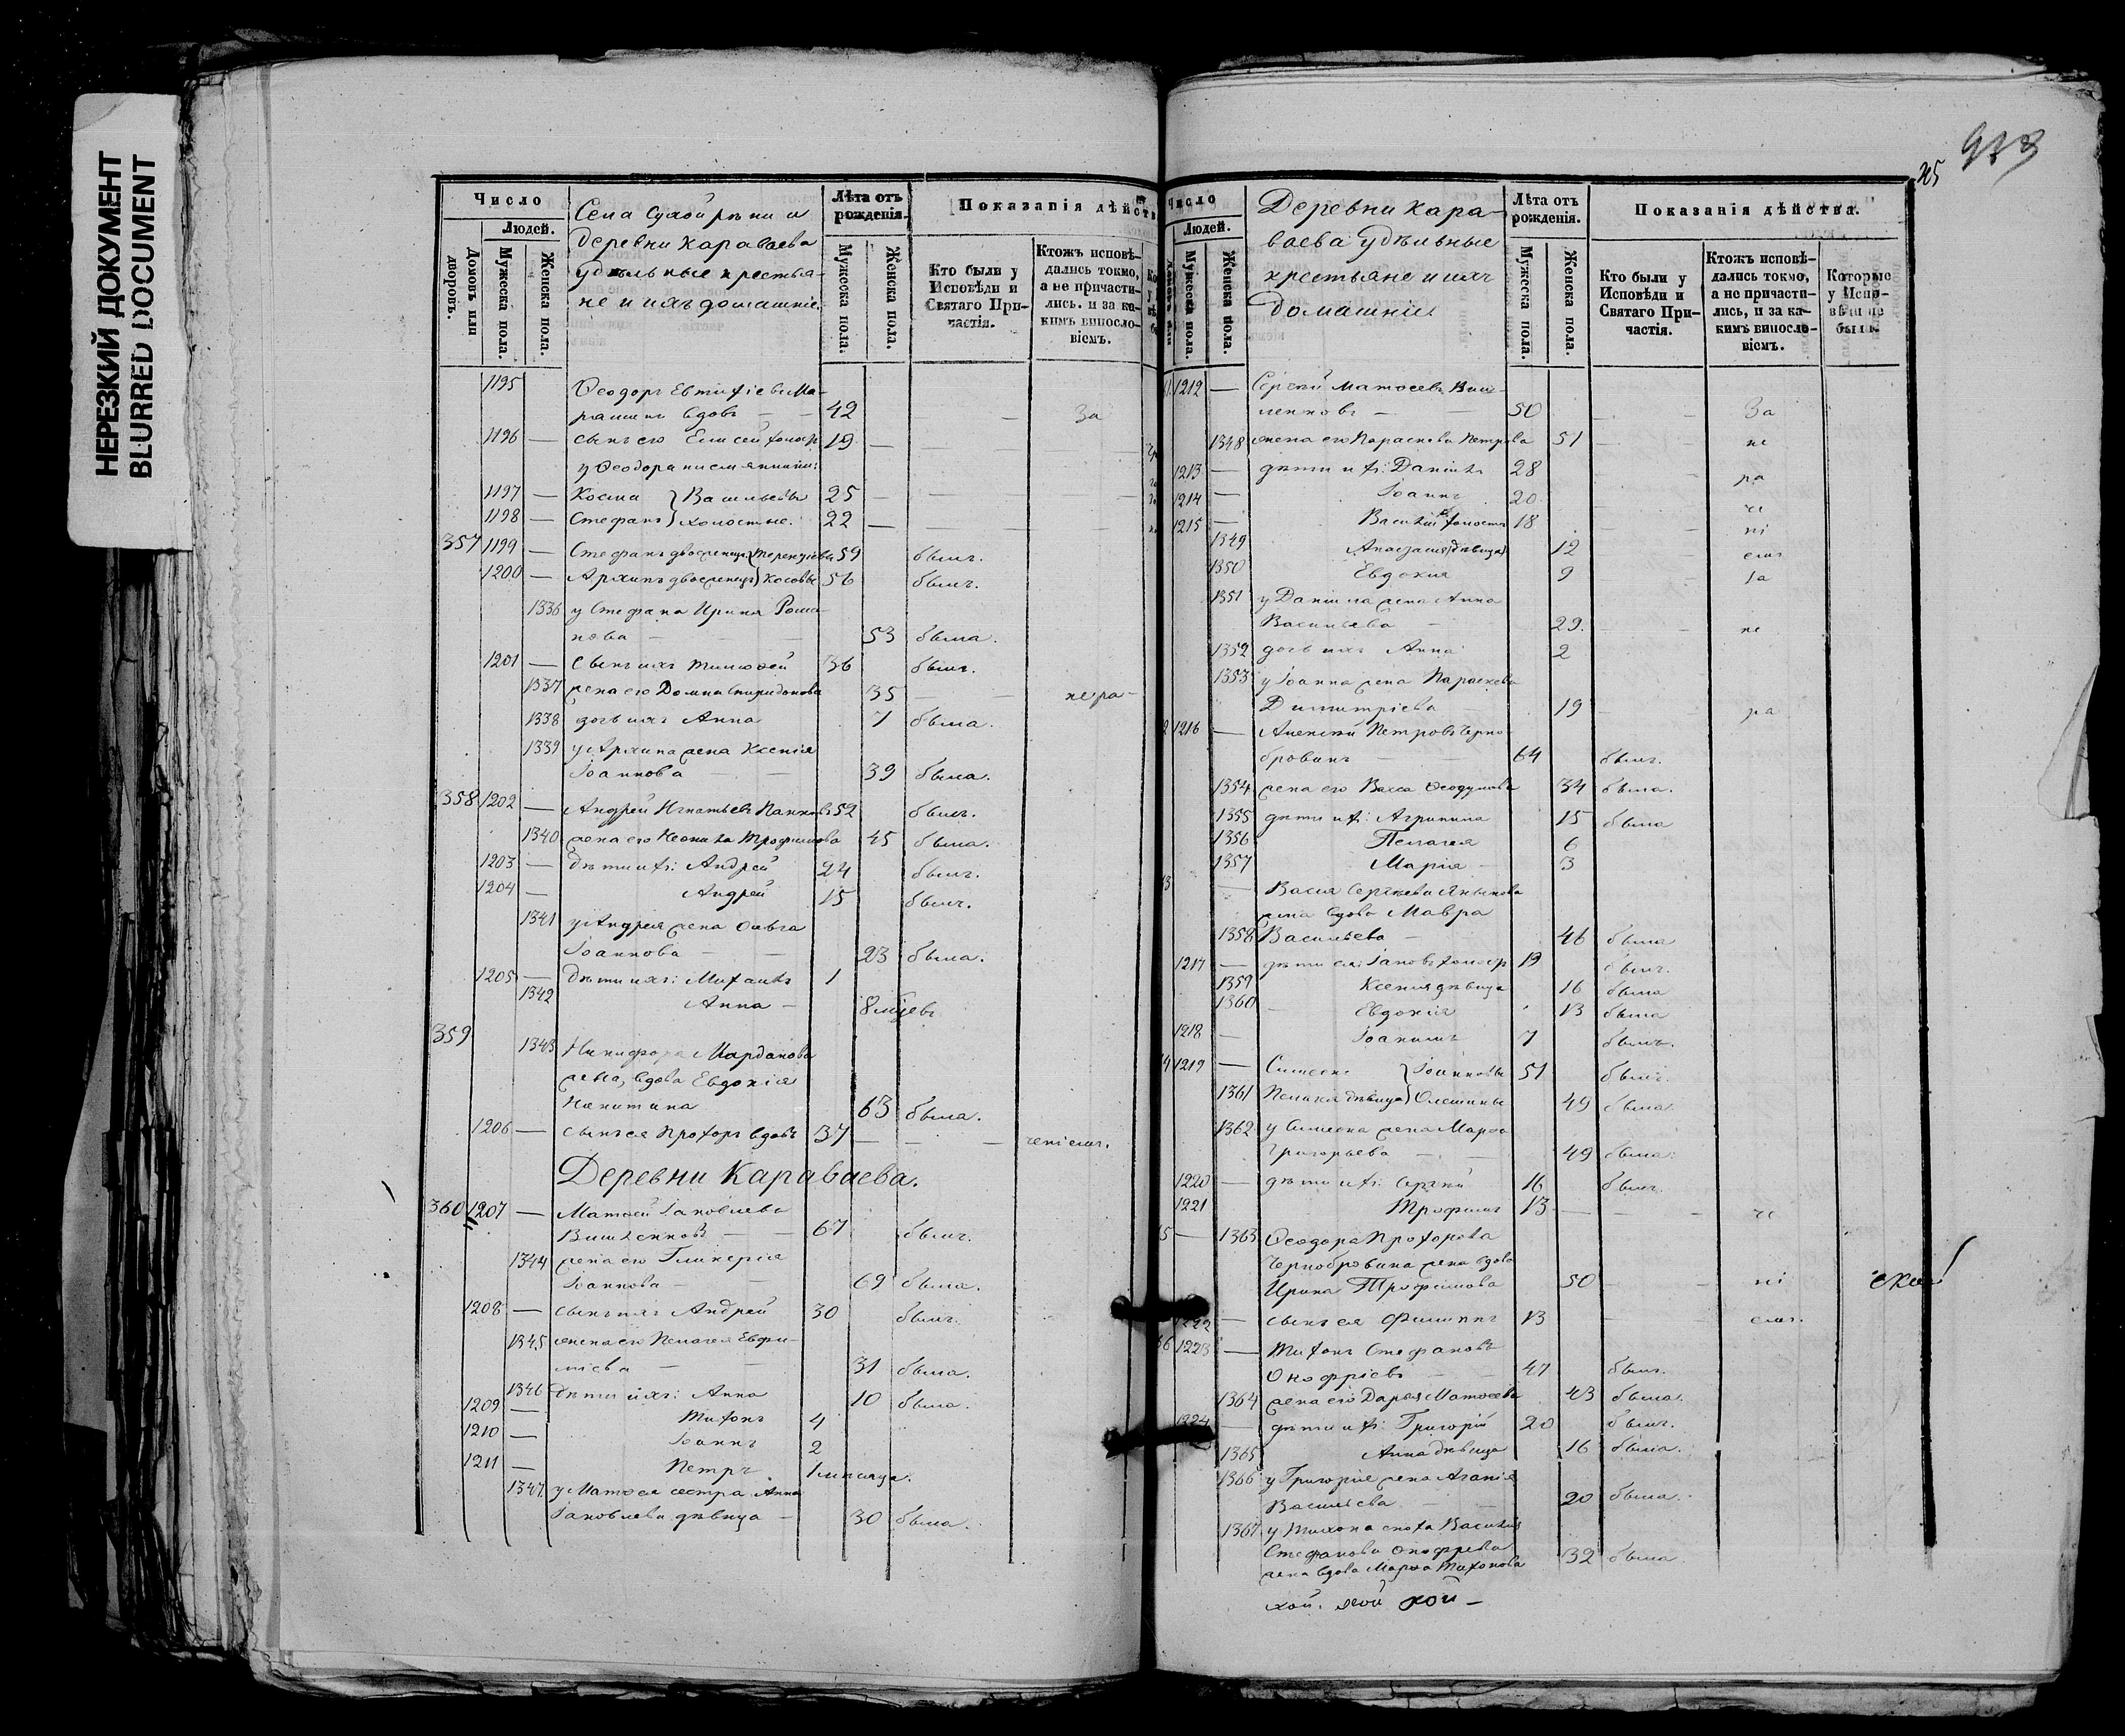 НЕРЕЗКИЙ ДОКУМЕНТ
BLURRED DOCUMENT
Число
Людей.
Домовъ или дворовъ.
Мужеска пола.
Женска пола.
Села Сухой рѣки и
деревни Караваева
удѣльные крестья-
не и ихъ домашніе.
Лѣта отъ рожденія.
Мужеска пола.
Женска пола.
Показанія дѣйств
Кто были у Исповѣди и Святаго Причастія.
Ктожъ исповѣдались токмо, а не причастились. и за какимъ винословіемъ.
1195 Ѳеодоръ Евтихіевъ Ма-
вдовъ — — 42 За
1196 — сынъ его Елисей холост 19 —
у Ѳеодора
1197 — Косма } Васильевы 25 —
1198 — Стефанъ } холостые. 22 —
357 1199 — Стефанъ двоеженецъ } Терентіевы 59 былъ.
1200 — Архипъ двоеженецъ } Косовы 56 былъ.
1336 у Стефана Ирина Рома-
нова — 53 была.
1201 — сынъ ихъ Тимоѳей 36 былъ.
1337 жена его Домна Спиридонова 35 — — не ра-
1338 дочь ихъ Анна 7 была.
1339 у Архипа жена Ксенія
Іоаннова — — 39 была.
358 1202 — Андрей Игнатьевъ Панковъ 52 былъ.
1340 жена его Неонила Трофимова 45 была.
1203 — дѣти ихъ: Андрей 24 былъ.
1204 — Андрей 15 былъ.
1341 у Андрея жена Ольга
Іоаннова — — 23 была.
1205 — дѣти ихъ: Михаилъ 1
1342 Анна — 8 мѣсцевъ
359 1343 Никифора Марданова
жена, вдова Евдокія
Никитина 63 была.
1206 — сынъ ея Прохоръ вдовъ 37 — — — ченіемъ.
Деревни Караваева.
360 1207 — Матѳей Іаковлевъ
— — 67 былъ.
1344 жена его Гликерія
Іоаннова — — 69 была.
1208 — сынъ ихъ Андрей 30 былъ.
1345 жена его Пелагея Евѳи-
міева — — 31 была.
1346 дѣти ихъ: Анна 10 была.
1209 — Тихонъ 4
1210 — Іоаннъ 2
1211 — Петръ 1 мѣсяца.
1347 у Матѳея сестра Анна
Іаковлева дѣвица — 30 была.
Число
Людей.
Мужеска пола.
Женска пола.
Деревни Кара-
ваева удѣльные
крестьяне и ихъ
домашніе
Лѣта отъ рожденія.
Мужеска пола.
Женска пола.
Показанія дѣйства.
Кто были у Исповѣди и Святаго Причастія.
Ктожъ исповѣдались токмо, а не причастились, и за какимъ винословіемъ.
Которые у Исповѣди не были.
1212 — Сергѣй Матѳеевъ
— 50 За
1348 жена его Параскева Петрова 51 не
1213 — дѣти ихъ: Даніилъ 28 ра
1214 — Іоаннъ 20 че
1215 — Василій холостъ 18 ні
1349 Анастасія дѣвица 12 емъ
1350 Евдокия 9 За
1351 у Даніила жена Анна
Васильева — 29. не
1352 дочь ихъ Анна 2
1353 у Іоанна жена Параскева
Димитріева — 19 ра
1216 — Алексѣй Петровъ Черно-
бровинъ — 64 былъ.
1354 жена его Васса Ѳеодулова 34 была.
1355 дѣти ихъ: Агрипина 15 была
1356 Пелагея 6
1357 Марія — 3
— Васил Сергѣева
жена вдова Мавра
1358 Васильева — 46 была
1217 — дѣти ея: Іаковъ холост 19 былъ.
1359 Ксенія дѣвица 16 была
1360 Евдокія 13 была
1218 — Іоакимъ 7 былъ.
1219 — Симеонъ } Іоанновы 51 былъ.
1361 Пелагія дѣвица } Олешины 49 была.
1362 у Симеона жена Марѳа
Григорьева — 49 была.
1220 — дѣти ихъ: Сергѣй 16 былъ.
1221 Трофимъ 13 — че
— 1363 Ѳеодора Прохорова
Чернобровина жена вдова
Ирина Трофимова 50 ні
1222 — сынъ ея Филиппъ 13 емъ.
1223 — Тихонъ Стефановъ
Онофріевъ — 47 былъ.
1364 жена его Дарья Матѳеева 43 была.
1224 — дѣти ихъ: Григорій 20 былъ.
1365 Анна дѣвица 16 была.
1366 у Григорія жена Агапія
Васильева — 20 была.
1367 у Тихона сноха Василія
Стефанова Онофріева
жена вдова Марѳа Тихонова 32 была